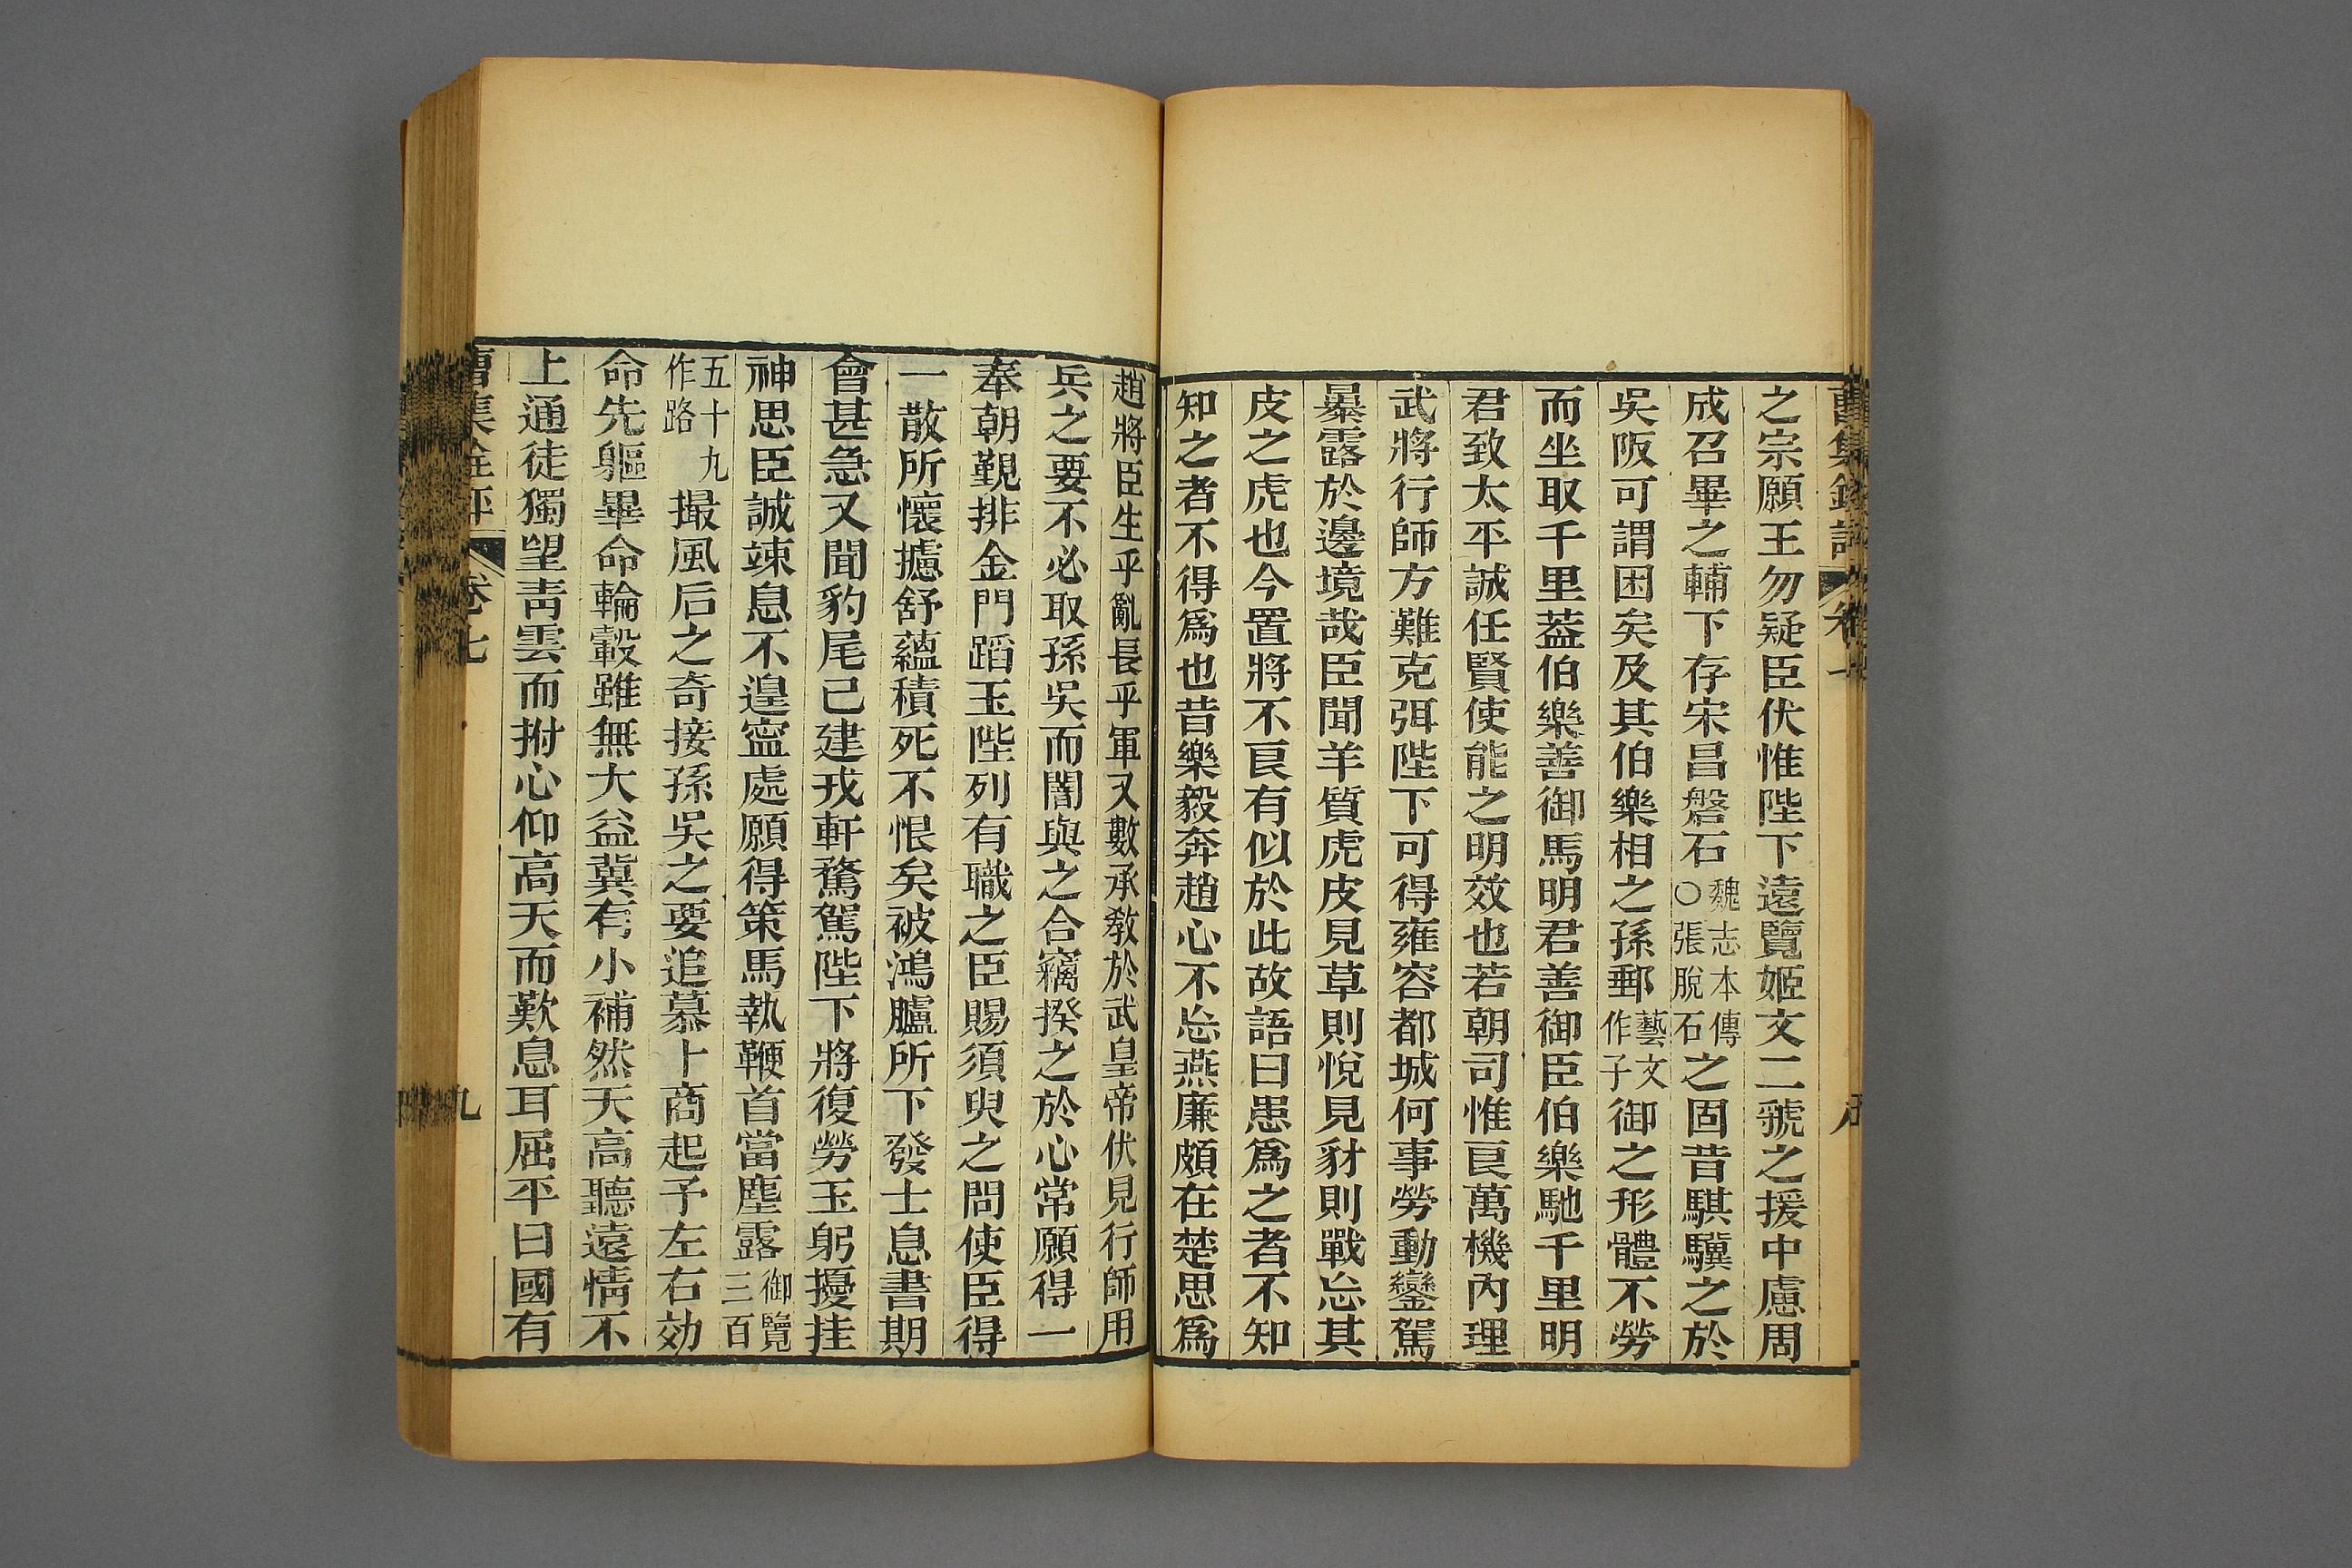 之宗願王勿疑臣伏惟陛下遠覽姬文二虢之援中慮周
成召畢之輔下存宋昌磐石魏志本傳○張脫石之固昔騏驥之於
吳阪可謂困矣及其伯樂相之孫郵藝文作子御之形體不勞
而坐取千里葢伯樂善御馬明君善御臣伯樂馳千里明
君致太平誠任賢使能之明效也若朝司惟良萬機內理
武將行師方難克弭陛下可得雍容都城何事勞動鑾駕
暴露於邊境哉臣聞羊質虎皮見草則悅見豺則戰忘其
皮之虎也今置將不良有似於此故語曰患爲之者不知
知之者不得爲也昔樂毅奔趙心不忘燕廉頗在楚思爲
趙將臣生乎亂長乎軍又數承敎於武皇帝伏見行師用
兵之要不必取孫吳而闇與之合竊揆之於心常願得一
奉朝覲排金門蹈玉陛列有職之臣賜須臾之問使臣得
一散所懷攄舒蘊積死不恨矣被鴻臚所下發士息書期
會甚急又聞豹尾已建戎軒騖駕陛下將復勞玉躬擾挂
神思臣誠竦息不遑寍處願得策馬執鞭首當塵露御覽三百
五十九作路撮風后之奇接孫吳之要追慕卜商起予左右効
命先軀畢命輪轂雖無大益冀有小補然天高聽遠情不
上通徒獨望靑雲而拊心仰高天而歎息耳屈平曰國有
曹集銓評
卷七
九